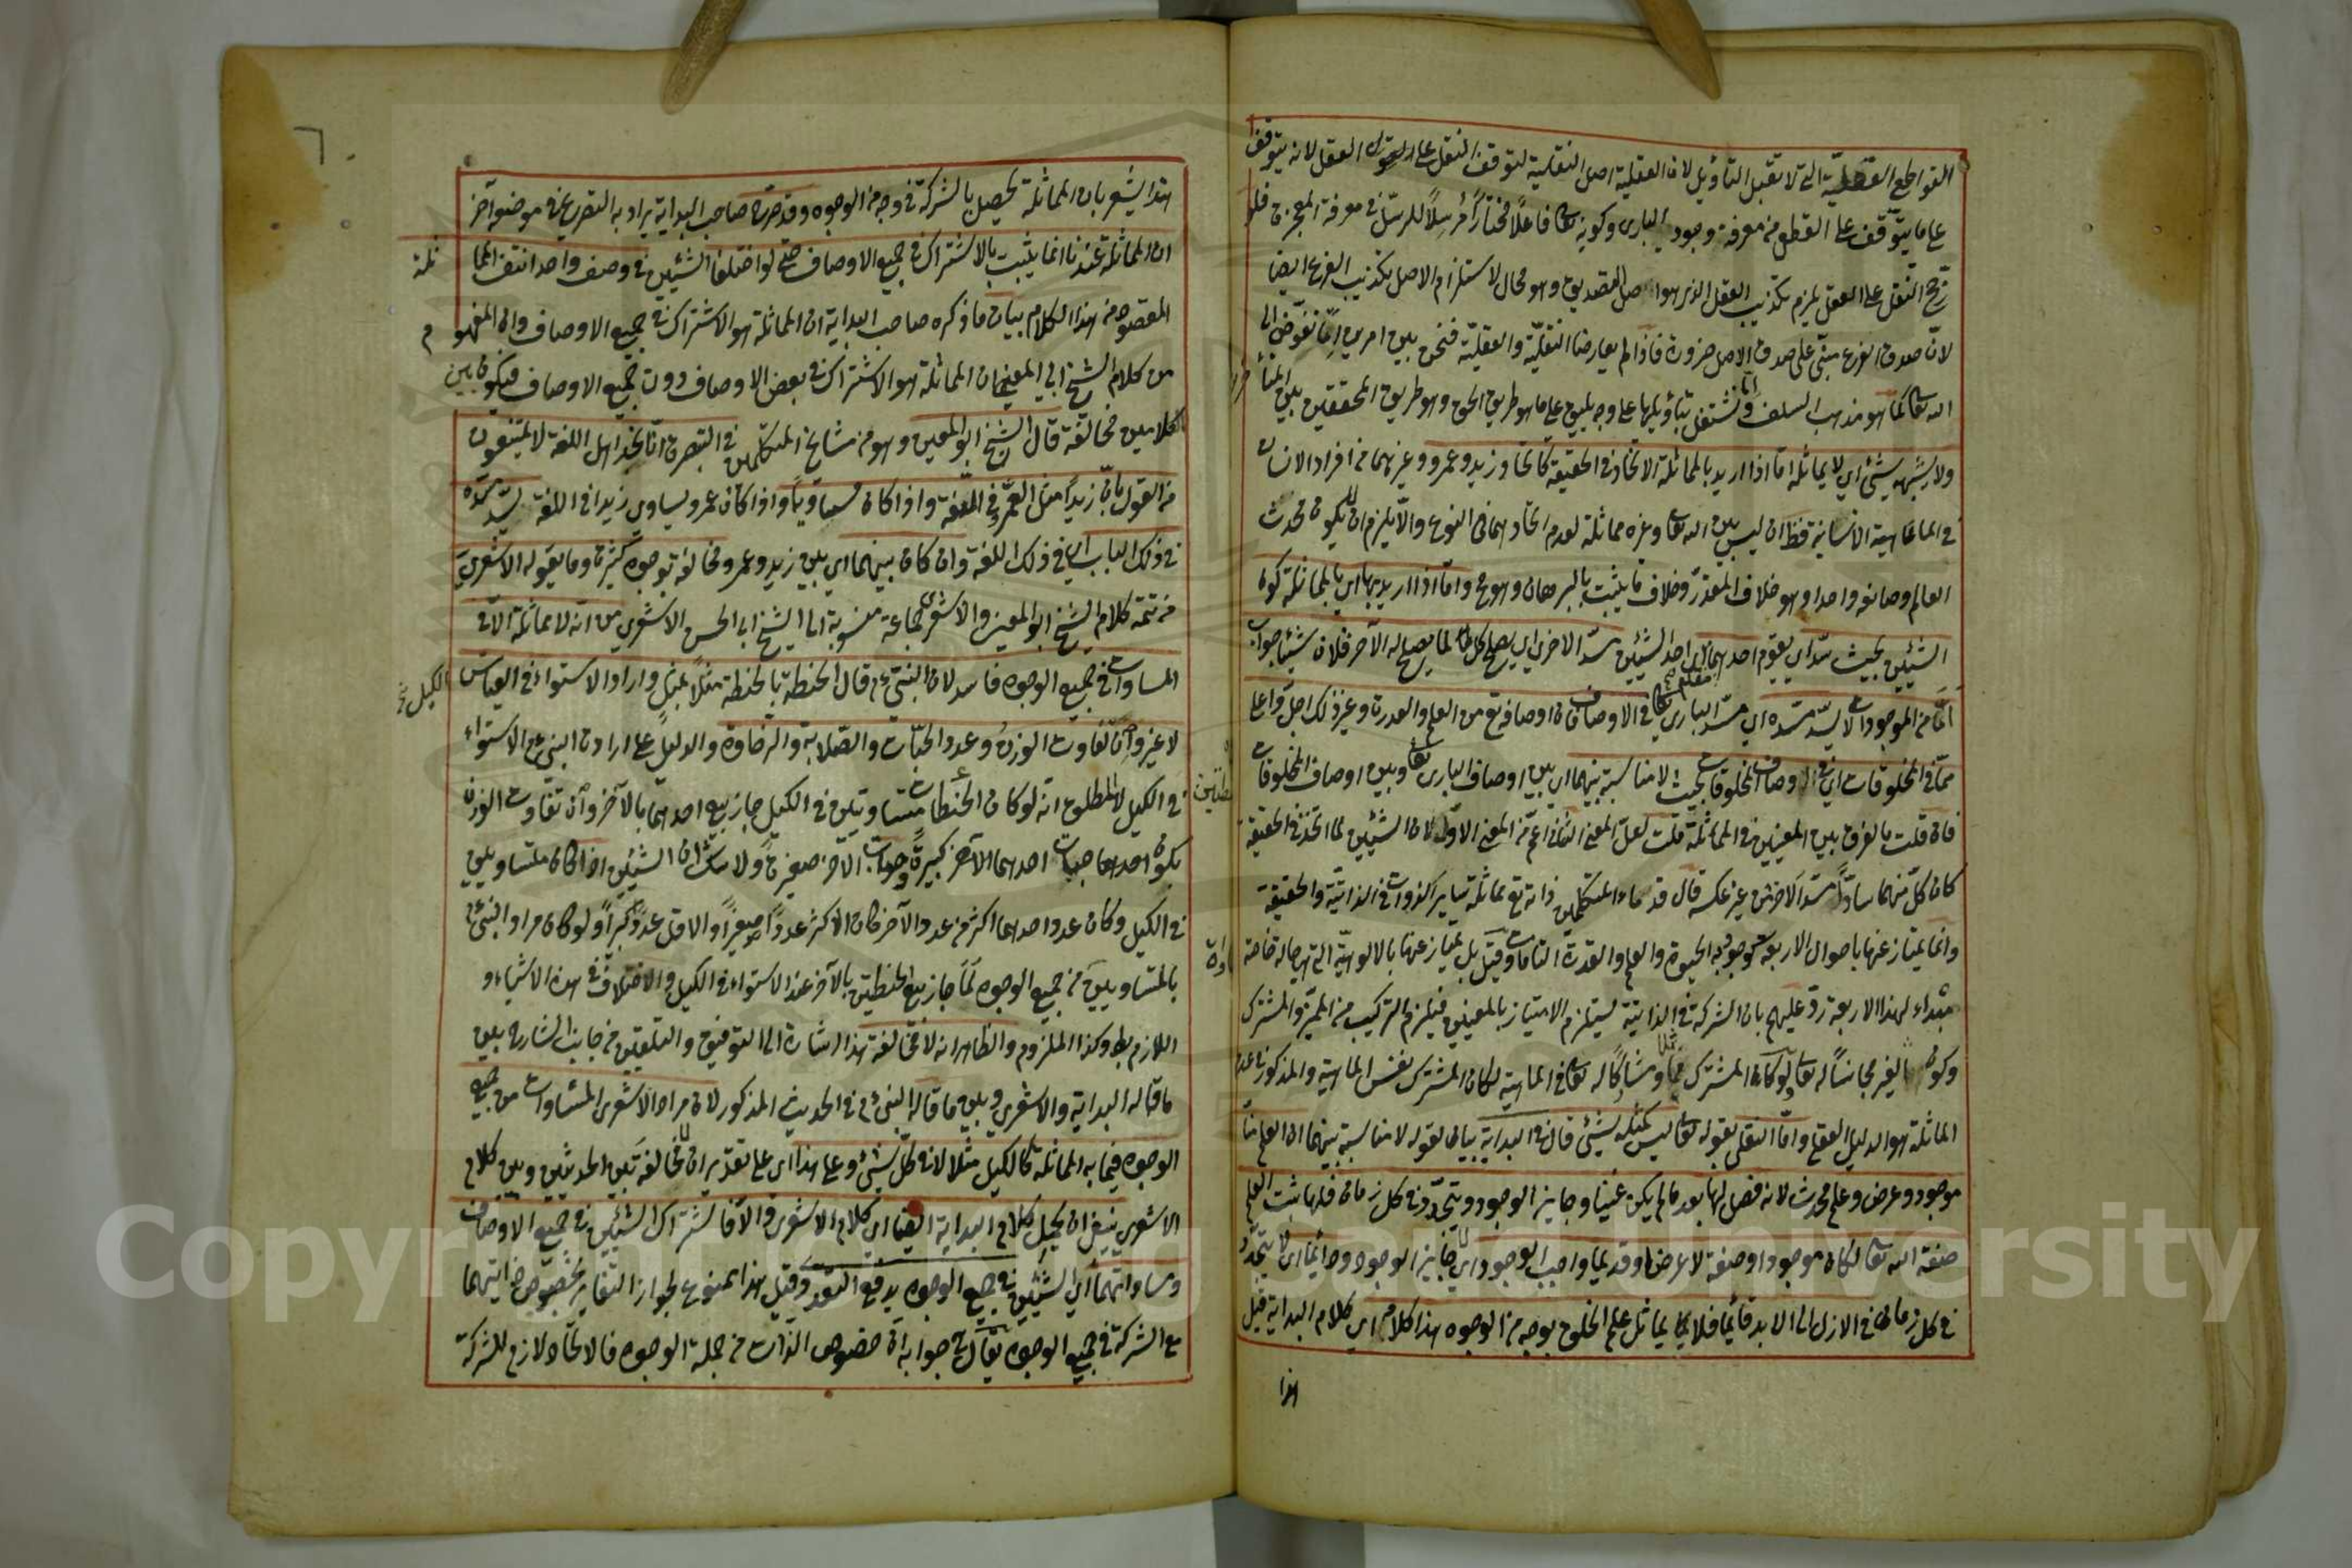 القواطع العقلية التى لا تقبل التأويل لان العقلية اصل النقلية لتوقف النقل على العقل لانه يتوقف
على ما يتوقف على القطع من معرفة وجود البارى وكونه تعا فاعلا مختارا مرسلا للرسل فى معرفة المعجزة فلو
رجح النقل على العقل يلزم تكذيب العقل الذى هو اصل التصديق وهو محال لاستلزام الاصل بكذب الفرع ايضا
لان صدق الفرع مبنى على صدق الاصل ضرورة فاذا لم يعارضنا النقلية والعقلية فنحن بين امرين اما نفوض الى
الله تعا كما هو مذهب السلف واما نشتغل بتأويلها على وجه يليق على ما هو طريق الحق وهو طريق المحققين
ولا يشبهه شيئ اى لا يماثله اما اذا اريد بالمماثلة الاتحاد فى الحقيقة كاتحاد زيد وعمرو وغيرهما من افراد الانسان
فى الماهية الانسانية فظ ان ليس بين الله تعا وغيره مماثلة لعدم اتحادهما فى النوع والا يلزم ان يكون محدث
العالم وصانعه واحدا وهو خلاف المقدر وخلاف ما يثبت بالبرهان وهو مح واما اذا اريد بها اى بالمماثلة كون
الشيئين بحيث يسد اى يقوم احدهما اى احد الشيئين مسد الاخر اى يصلح كل لما يصلح له الآخر فلان شيئا جواب
اما من الموجودات لا يسد مسده اى مسد البارى تعا فى الاوصاف فان اوصافه تع من العلم والقدرة وغير ذلك اجل واعلى
مما فى المخلوقات اى فى اوصاف المخلوقات بحيث لا مناسبة بينهما اى بين اوصاف البارى تعا وبين اوصاف المخلوقات
فان قلت بالفرق بين المعنيين فى المماثلة قلت لعل المعنى الثانى اعم من المعنى الاول لان الشيئين لما اتحد فى الحقيقة
كان كل منهما سادا مسد الاخر من غير عكسه قال قدماء المتكلمين ذاته تع مماثلة لساير الذوات فى الذاتية والحقيقة
وانما يمتاز عنها باحوال الاربعة الوجود والحيوة والعلم والقدرة التامات وقيل بل يمتاز عنها بالالوهية التى هى حالة خاصة
مبتداء لهذا الاربعة رد عليهم بان الشركة فى الذاتية يستلزم الامتياز بالمعنيين فيلزم التركيب من المميز والمشترك
وكون الغير مجانسا له تعا لو كان المشترك ومشاركا له تعا فى الماهية لو كان المشترك نفس الماهية والمذكور على عدم
المماثلة هو الدليل العقلى واما النقلى بقوله تعا ليس كمثله شيئ قال فى البداية بيان لقوله لا مناسبة بينهما ان العلم منا
موجود وعرض وعلم محدث لانه فصل لها بعد ما لم يكن عينا وجايز الوجود ويتجدد فى كل زمان فلو اثبت العلم
صفة الله تعا لكان موجودا وصفة لا عرضا وقديما وواجب الوجود لا جايز الوجود ودائما اى لا يتجدد
فى كل زمان من الازل الى الابد قائما فلا يماثل علم الخلق بوجه من الوجوه هذا كلامه اى كلام البداية قيل
هذا
هذا يشعر بان المماثلة تحصل بالشركة فى وجه من الوجوه وقد صرح صاحب البداية يراد به التصريح فى موضع آخر
ان المماثلة عندنا انما يثبت بالاشتراك فى جميع الاوصاف حتى لو اختلفا الشيئين فى وصف واحد انتفى المما
ثلة
المقصود من هذا الكلام بيان ما ذكره صاحب البداية ان المماثلة هو الاشتراك فى جميع الاوصاف وان المفهو
م
من كلام الشيخ ابى المعين ان المماثلة هو الاشتراك فى بعض الاوصاف دون جميع الاوصاف فيكون بين
الكلامين مخالفة قال الشيخ ابو المعين وهو من مشايخ المتكلمين فى التبصرة انا نجد اهل اللغة لا يمتنعون
من القول بان زيدا مثل العمرو فى الفقه واذا كان مساويا واذا كان عمرو يساوى زيدا فى اللغة يسد مسده
فى ذلك الباب اى فى ذلك اللغة وان كان بينهما اى بين زيد وعمرو مخالفة بوجوه كثيرة وما يقوله الاشعرى
من تتمة كلام الشيخ ابو المعين والاشعرى جماعة منسوبة الى الشيخ ابى الحسن الاشعرى من انه لا مماثلة الا فى
المساوات فى جميع الوجوه فاسد لان النبى ع م قال الحنطة بالحنطة مثلا بمثل واراد الاستواء فى القياس
الكيل
لا غير وان تفاوت الوزن وعدد الحبات والصلابة والرخاوة والدليل على ارادة النبى ع الاستواء
فى الكيل لا المطلوع انه لو كان الحنطات متساويتين فى الكيل جاز بيع احدهما بالآخر وان تفاوت الوزن
يكون احدهما حبات احدهما الآخر كبيرة وحبات الآخر صغيرة ولا شك ان الشيئين اذا كان متساويين
فى الكيل وكان عدد احدهما اكثر من عدد الآخر كان الاكثر عددا صغيرا والاقل عددا كبيرا ولو كان مراد النبى ع م
بالمتساويين من جميع الوجوه لما جاز بيع الحنطتين بالآخر عند الاستواء فى الكيل والاختلاف فى هذه الاشياء و
اللازم بط وكذا الملزوم والظاهر انه لا مخالفة هذا اشارة الى التوفيق والتلفيق من جانب الشارح بين
ما قاله البداية والاشعرى وبين ما قاله النبى ع م فى الحديث المذكور لان مراد الاشعرى المساوات من جميع
الوجوه فيما به المماثلة كالكيل مثلا لا فى كل شيئ وعلى هذا اى على تقدير ان لا مخالفة بين الحديثين وبين كلام
الاشعرى ينبغى ان يحمل كلام البداية ايضا اى كلام الاشعرى والا فاشتراك الشيئين فى جميع الاوصاف
ومساواتهما اى الشيئين فى جميع الوجوه يدفع التعدد وقيل هذا ممنوع لجواز التغاير بخصوص ذاتيهما
مع الشركة فى جميع الوجوه يقال فى جوابه ان خصوص الذات من جملة الوجوه فالاتحاد لازم للشركة
Copyright © King Saud University